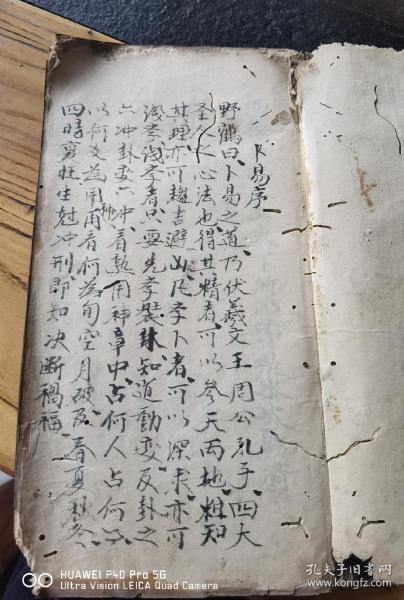 卜易序
野鶴曰卜易之道乃伏羲文王周公孔子四大
圣人心法也得其精者可以參天兩地粗知
其理亦可趨吉避凶凡孝卜者可以深求亦可
淺孝淺孝者只要先孝裝卦知道動变反卦之
六冲卦变六冲看熟用神章中占何人占何事
以何爻為用神用看何為旬空月破及春夏秋冬
四時衰旺生尅冲刑即如决断禍福
HUAWEI P40 Pro 5G
Ultra Vision LEICA Quad Camera
孔夫子旧书网
www.kongfz.com